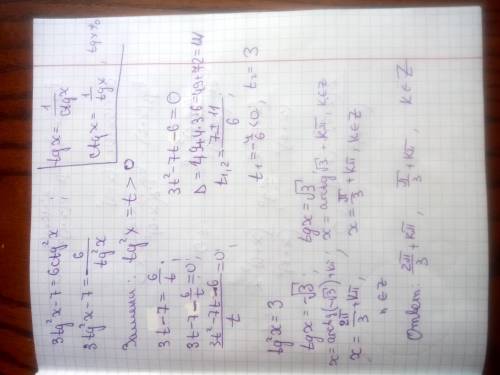 3tg²x-7=6ctg²x;
3tg²x-7=6/tg²x
tgx=1/ctgx
ctgx=1/tgx, tgx≠0
Замени: tg²x=t>0
3t-7=6/t;
3t-7-6/t=0;
(3t²-7t-6)/t=0;
3t²-7t-6=0
D=49+4·3·6=49+72=121
t₁,₂=(7±11)/6;
<0; t₂=3
tg²x=3
tgx=-√3; tgx=√3;
x=arctg(-√3)+kπ; x=arctg√3+kπ, k∈Z
x=2π/3+kπ, x=π/3+kπ, k∈Z
k∈Z
Ответ: 2π/3+kπ, π/3+kπ, k∈Z